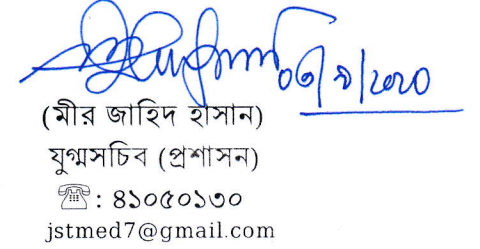 (মীর জাহিদ হাসান)
যুগ্মসচিব (প্রশাসন)
☏ : ৪১০৫০১৩০
jstmed7@gmail.com